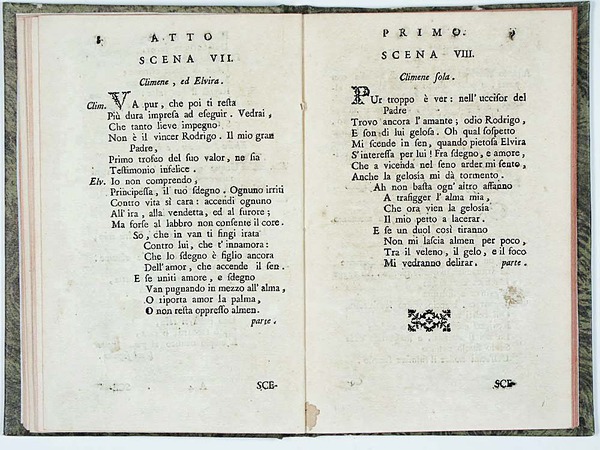 8 ATTO
SCENA VII.
Climene, ed Elvira.
Clim. VA pur, che poi ti resta
Più dura impresa ad eseguir. Vedrai,
Che tanto lieve impegno
Non è il vincer Rodrigo. Il mio gran
Padre,
Primo trofeo del suo valor, ne sia
Testimonio infelice.
Elv. Io non comprendo,
Principessa, il tuo sdegno. Ognuno irriti
Contro vita sì cara: accendi ognuno
All'ira, alla vendetta, ed al furore;
Ma forse al labbro non consente il core.
Sò, che in van ti fingi irata
Contro lui, che t'innamora:
Che lo sdegno è figlio ancora
Dell'amor, che accende il sen.
E se uniti amore, e sdegno
Van pugnando in mezzo all'alma,
O riporta amor la palma,
O non resta oppresso almen.
parte.
SCE-
PRIMO. 9
SCENA VIII.
Climene sola.
PUr troppo è ver: nell'uccisor del
Padre
Trovo ancora l'amante; odio Rodrigo,
E son di lui gelosa. Oh qual sospetto
Mi scende in sen, quando pietosa Elvira
S'interessa per lui! Fra sdegno, e amore,
Che a vicenda nel seno arder mi sento,
Anche la gelosia mi dà tormento.
Ah non basta ogn'altro affanno
A trafigger l'alma mia,
Che ora vien la gelosia
Il mio petto a lacerar.
E se un duol così tiranno
Non mi lascia almen per poco,
Tra il veleno, il gelo, e il foco
Mi vedranno delirar. parte.
SCE-